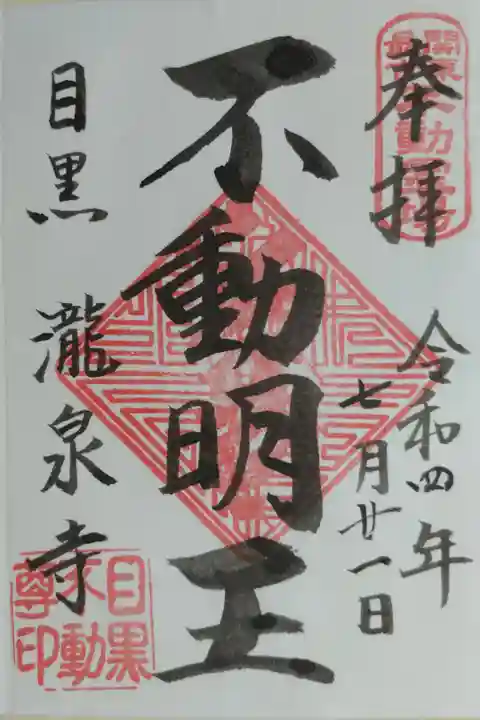 奉拝
令和四年
七月廿一日
不動明王
目黒 瀧泉寺
関東最
目黒
不動
尊印